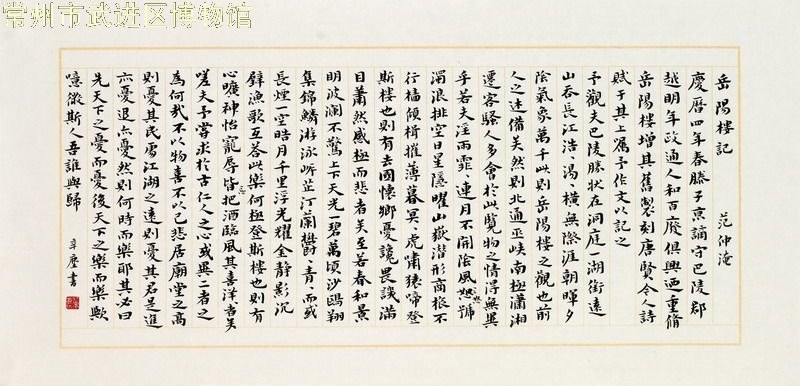 常州市武进区博物馆
岳陽樓記 范仲淹
慶曆四年春滕子京謫守巴陵郡
越明年政通人和百廢俱興迺重脩
岳陽樓增其舊製刻唐賢今人詩
賦于其上屬予作文以記之
予觀夫巴陵勝狀在洞庭一湖銜遠
山吞長江浩浩湯湯橫無際涯朝暉夕
陰氣象萬千此則岳陽樓之觀也前
人之述備矣然則北通巫峽南極瀟湘
遷客騷人多會於此覽物之情得無異
乎若夫淫雨霏霏連月不開陰風怒號
濁浪排空日星隱曜山嶽潛形商旅不
行檣傾楫摧薄暮冥冥虎嘯猿啼登
斯樓也則有去國懷鄉憂讒畏譏滿
目蕭然感極而悲者矣至若春和景
明波瀾不驚上下天光一碧萬頃沙鷗翔
集錦鱗游泳岸芷汀蘭鬱鬱青青而或
長煙一空皓月千里浮光耀金靜影沉
璧漁歌互荅此樂何極登斯樓也則有
心曠神怡寵辱皆忘把酒臨風其喜洋洋者矣
嗟夫予嘗求於古仁人之心或異二者之
為何哉不以物喜不以己悲居廟堂之高
則憂其民處江湖之遠則憂其君是進
亦憂退亦憂然則何時而樂耶其必曰
先天下之憂而憂後天下之樂而樂歟
噫微斯人吾誰與歸 辛塵書